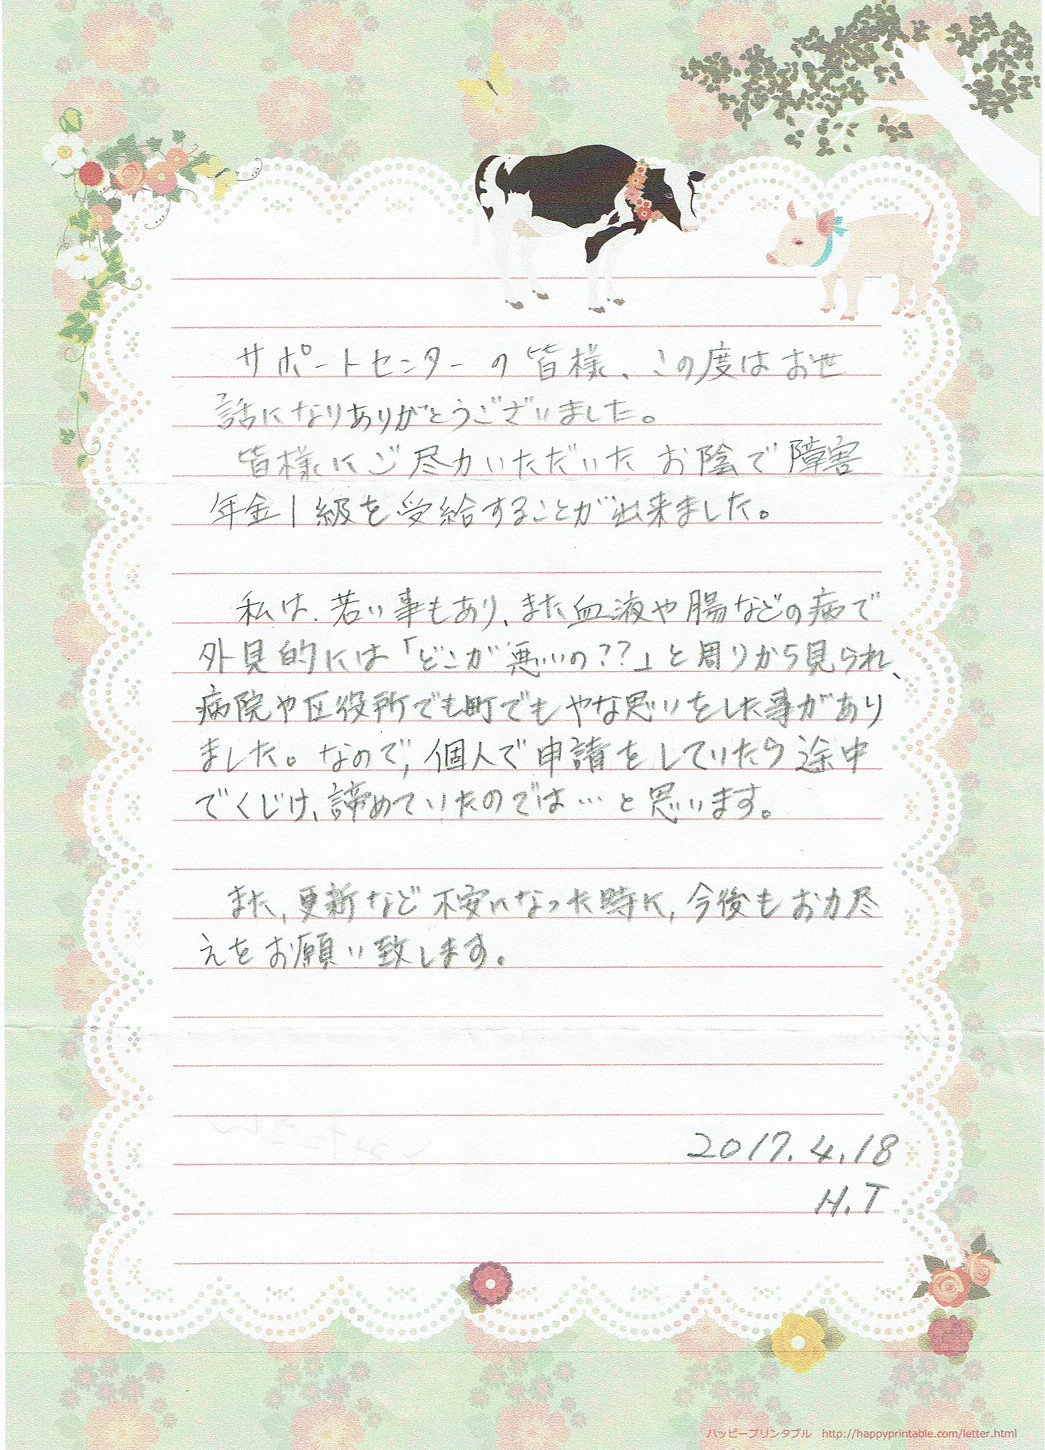 サポートセンターの皆様、この度はお世
話になりありがとうございました。
皆様にご尽力いただいたお陰で障害
年金1級を受給することが出来ました。
私は、若い事もあり、また血液や腸などの病で
外見的には「どこが悪いの??」と周りから見られ、
病院や区役所でも町でもやな思いをした事があり
ました。なので、個人で申請をしていたら途中
でくじけ、諦めていたのでは…と思います。
また、更新など不安になった時に、今後もお力尽
えをお願い致します。
2017.4.18
H.T
ハッピープリンタブル http://happyprintable.com/letter.html